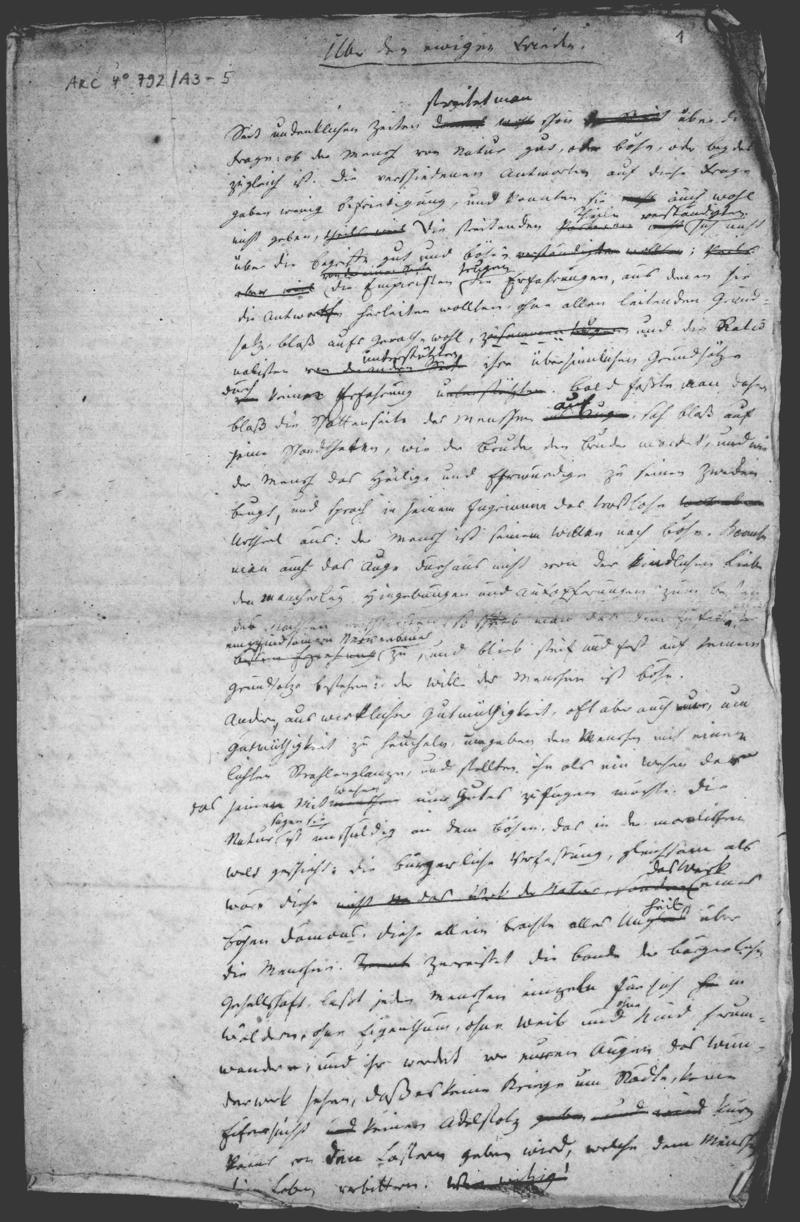 Über den ewigen Frieden.
1
ARC 4° 792/A3-5
streitet man
Seit undenklichen Zeiten schon über die
Frage: ob der Mensch von Natur gut, oder böse, oder beydes
zugleich ist. Die verschiedenen Antworten auf diese Frage
gaben wenig Befriedigung, und konnten sie auch wohl
nicht geben, Die streitenden Theile verständigten sich nicht
über die Begriffe gut und böse
die Empiristen trugen die Erfahrungen, aus denen sie
die Antworten herleiten wollten, ohne allen leitenden Grund-
satz, bloß aufs Gerathewohl, zusammen und die Ratio
nalisten unterstützten ihre übersinnlichen Grundsätze
durch keine Erfahrung unterstützten. Bald faßte man daher
bloß die Schattenseite des Menschen auf, sah bloß auf
seine Schandthaten, wie der Bruder den Bruder mordet, und wie
der Mensch das Heilige und Ehrwürdige zu seinen Zwecken
beugt, und sprach in seinem Ingrimme das trostlose
Urtheil aus: der Mensch ist seinem Willen nach böse. Konnte
man auch das Auge durchaus nicht von der kindlichen Liebe
den mancherley Hingebungen und Aufopferungen zum Besten
des Nächsten so schrieb man das dem
zu, und blieb steif und fest auf seinem
Grundsatze bestehen: der Wille des Menschen ist böse.
Andere, aus wirklicher Gutmüthigkeit, oft aber auch nur, um
Gutmüthigkeit zu heucheln, umgeben den Menschen mit einem
lichten Strahlenglanze, und stellten ihn als ein Wesen dar
das seinen Mitwesen nur Gutes zufügen möchte. Die
Natur sagen sie ist unschuldig an dem Bösen, das in der moralischen
Welt geschieht; die bürgerliche Verfassung, gleichsam als
wäre diese nicht das Werk der Natur, sondern das Werk eines
bösen Dämons, diese allein brachte alles Unheil über
die Menschen. Zerreisset die Bande der bürgerlichen
Gesellschaft, laßt jeden Menschen einzeln für sich in
Wäldern, ohne Eigenthum, ohne Weib und ohne Kind herum-
wandern; und ihr werdet vor euren Augen das Wun-
derwerk sehen, daß es keine Kriege um Städte, keine
Eifersucht und keinen Adelstolz kurz
keins von den Lastern geben wird, welche dem Menschen
das Leben verbittern.